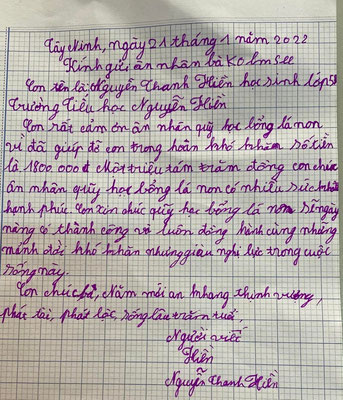 Tây Ninh, ngày 21 tháng 1 năm 2022
Kính gửi ân nhân bà Ko Im See
Con tên là: Nguyễn Thanh Hiền học sinh lớp 5
Trường Tiểu học Nguyễn Hiền
Con rất cảm ơn ân nhân quỹ học bổng lá non
vì đã giúp đỡ con trong hoàn khó khăn số tiền
là 1800.000đ Một triệu tám trăm đồng con chúc
ân nhân quỹ học bổng lá non có nhiều sức khỏe
hạnh phúc. Con xin chúc quỹ học bổng lá non sẽ ngày
nàng có thành công và luôn đồng hành cùng những
mảnh đời khó khăn nhưng giàu nghị lực trong cuộc
sống này.
Con chúc bà, Năm mới an khang thịnh vượng,
phát tài, phát lộc, sống lâu trăm tuổi,
Người viết
Hiền
Nguyễn Thanh Hiền